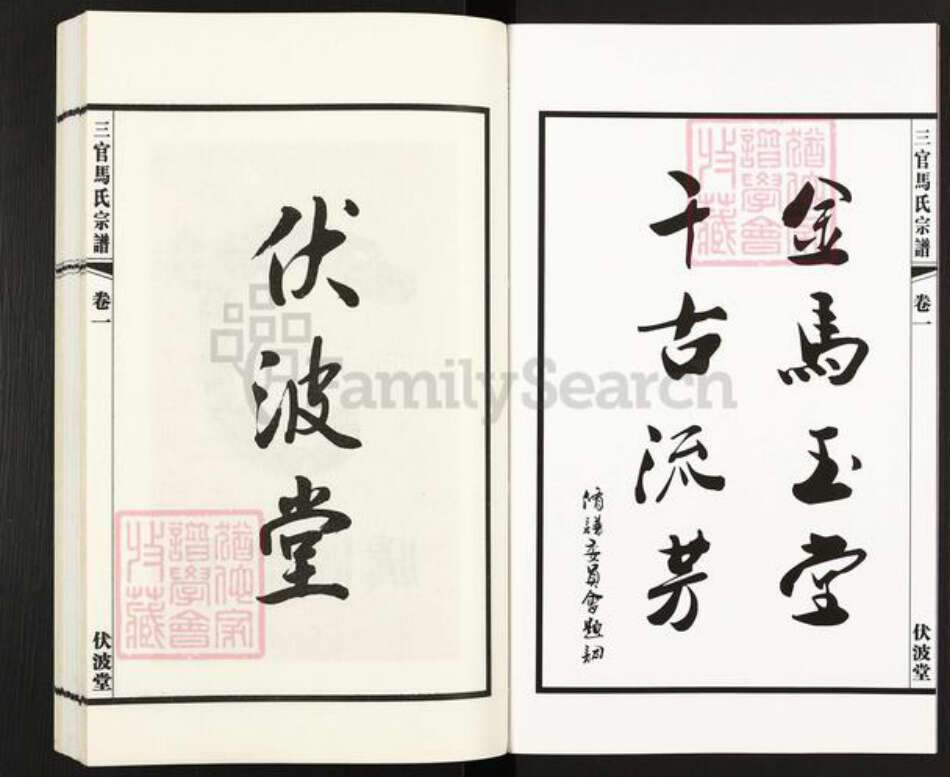 金馬玉堂
千古流芳
修譜委員會題
三官馬氏宗譜
卷一
伏波堂
伏波堂
三官馬氏宗譜
卷一
伏波堂
譜學會
收藏
譜學會
收藏
FamilySearch